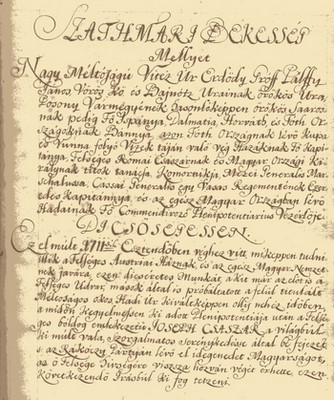 SZATHMARI BEKESSÉG
Mellyet
Nagy Méltóságú Vitéz Ur Erdődy Groff Pálffy
János Vörös Kő és Dajnótz Urainak örökös Ura,
Posony Vármegyének hasonlóképpen örökös
nak pedig Fő Ispánja, Dalmatia, Horváth, és Tóth Or-
szágoknak Bánnya, azon Tóth Országnak lévő Kap-
Vunna folyó Vizek táján való vég Házaknak Fő Kapi-
tánya, Felséges Római Császárnak és Magyar Országi Ki-
rálynak titok tanácsa, Komornikja, Mezei Generalis Mar-
schallussa, Cassai Generalis egy Vasas Regementének Ezere-
des Kapitánya és az egész Magyar Országban lévő
Hadainak Fő Commendirozó Plenipotentiarius Vezérlője.
DICSŐSÉGESSEN.
Ez el múlt 1711. Esztendőben véghez vitt miképpen tudni
illik a Felséges Austriai Háznak, és az egész Magyar Nemzet-
nek javára, ezen dicséretes Munkát, a kit már az előtt is a
Felséges Udvar, mások által is próbáltatott a felül titulált
Méltóságos okos Hadi Ur kiválóképpen olly nehéz időben,
a midőn Kegyelmessen ki adot Plenipotentiája után a Felsé-
ges boldog emlékezetű JOSEPH CSÁSZÁR, e világból
ki múlt vala, Szorgalmatos Serénykedése által bé fejezett
s: az Rákóczy Pártyán lévő el idegenedet Magyarságot,
az ő Felsége hívségére vissza hozván végit érhette, ezen
következendő írásbul ki fog tetzeni.